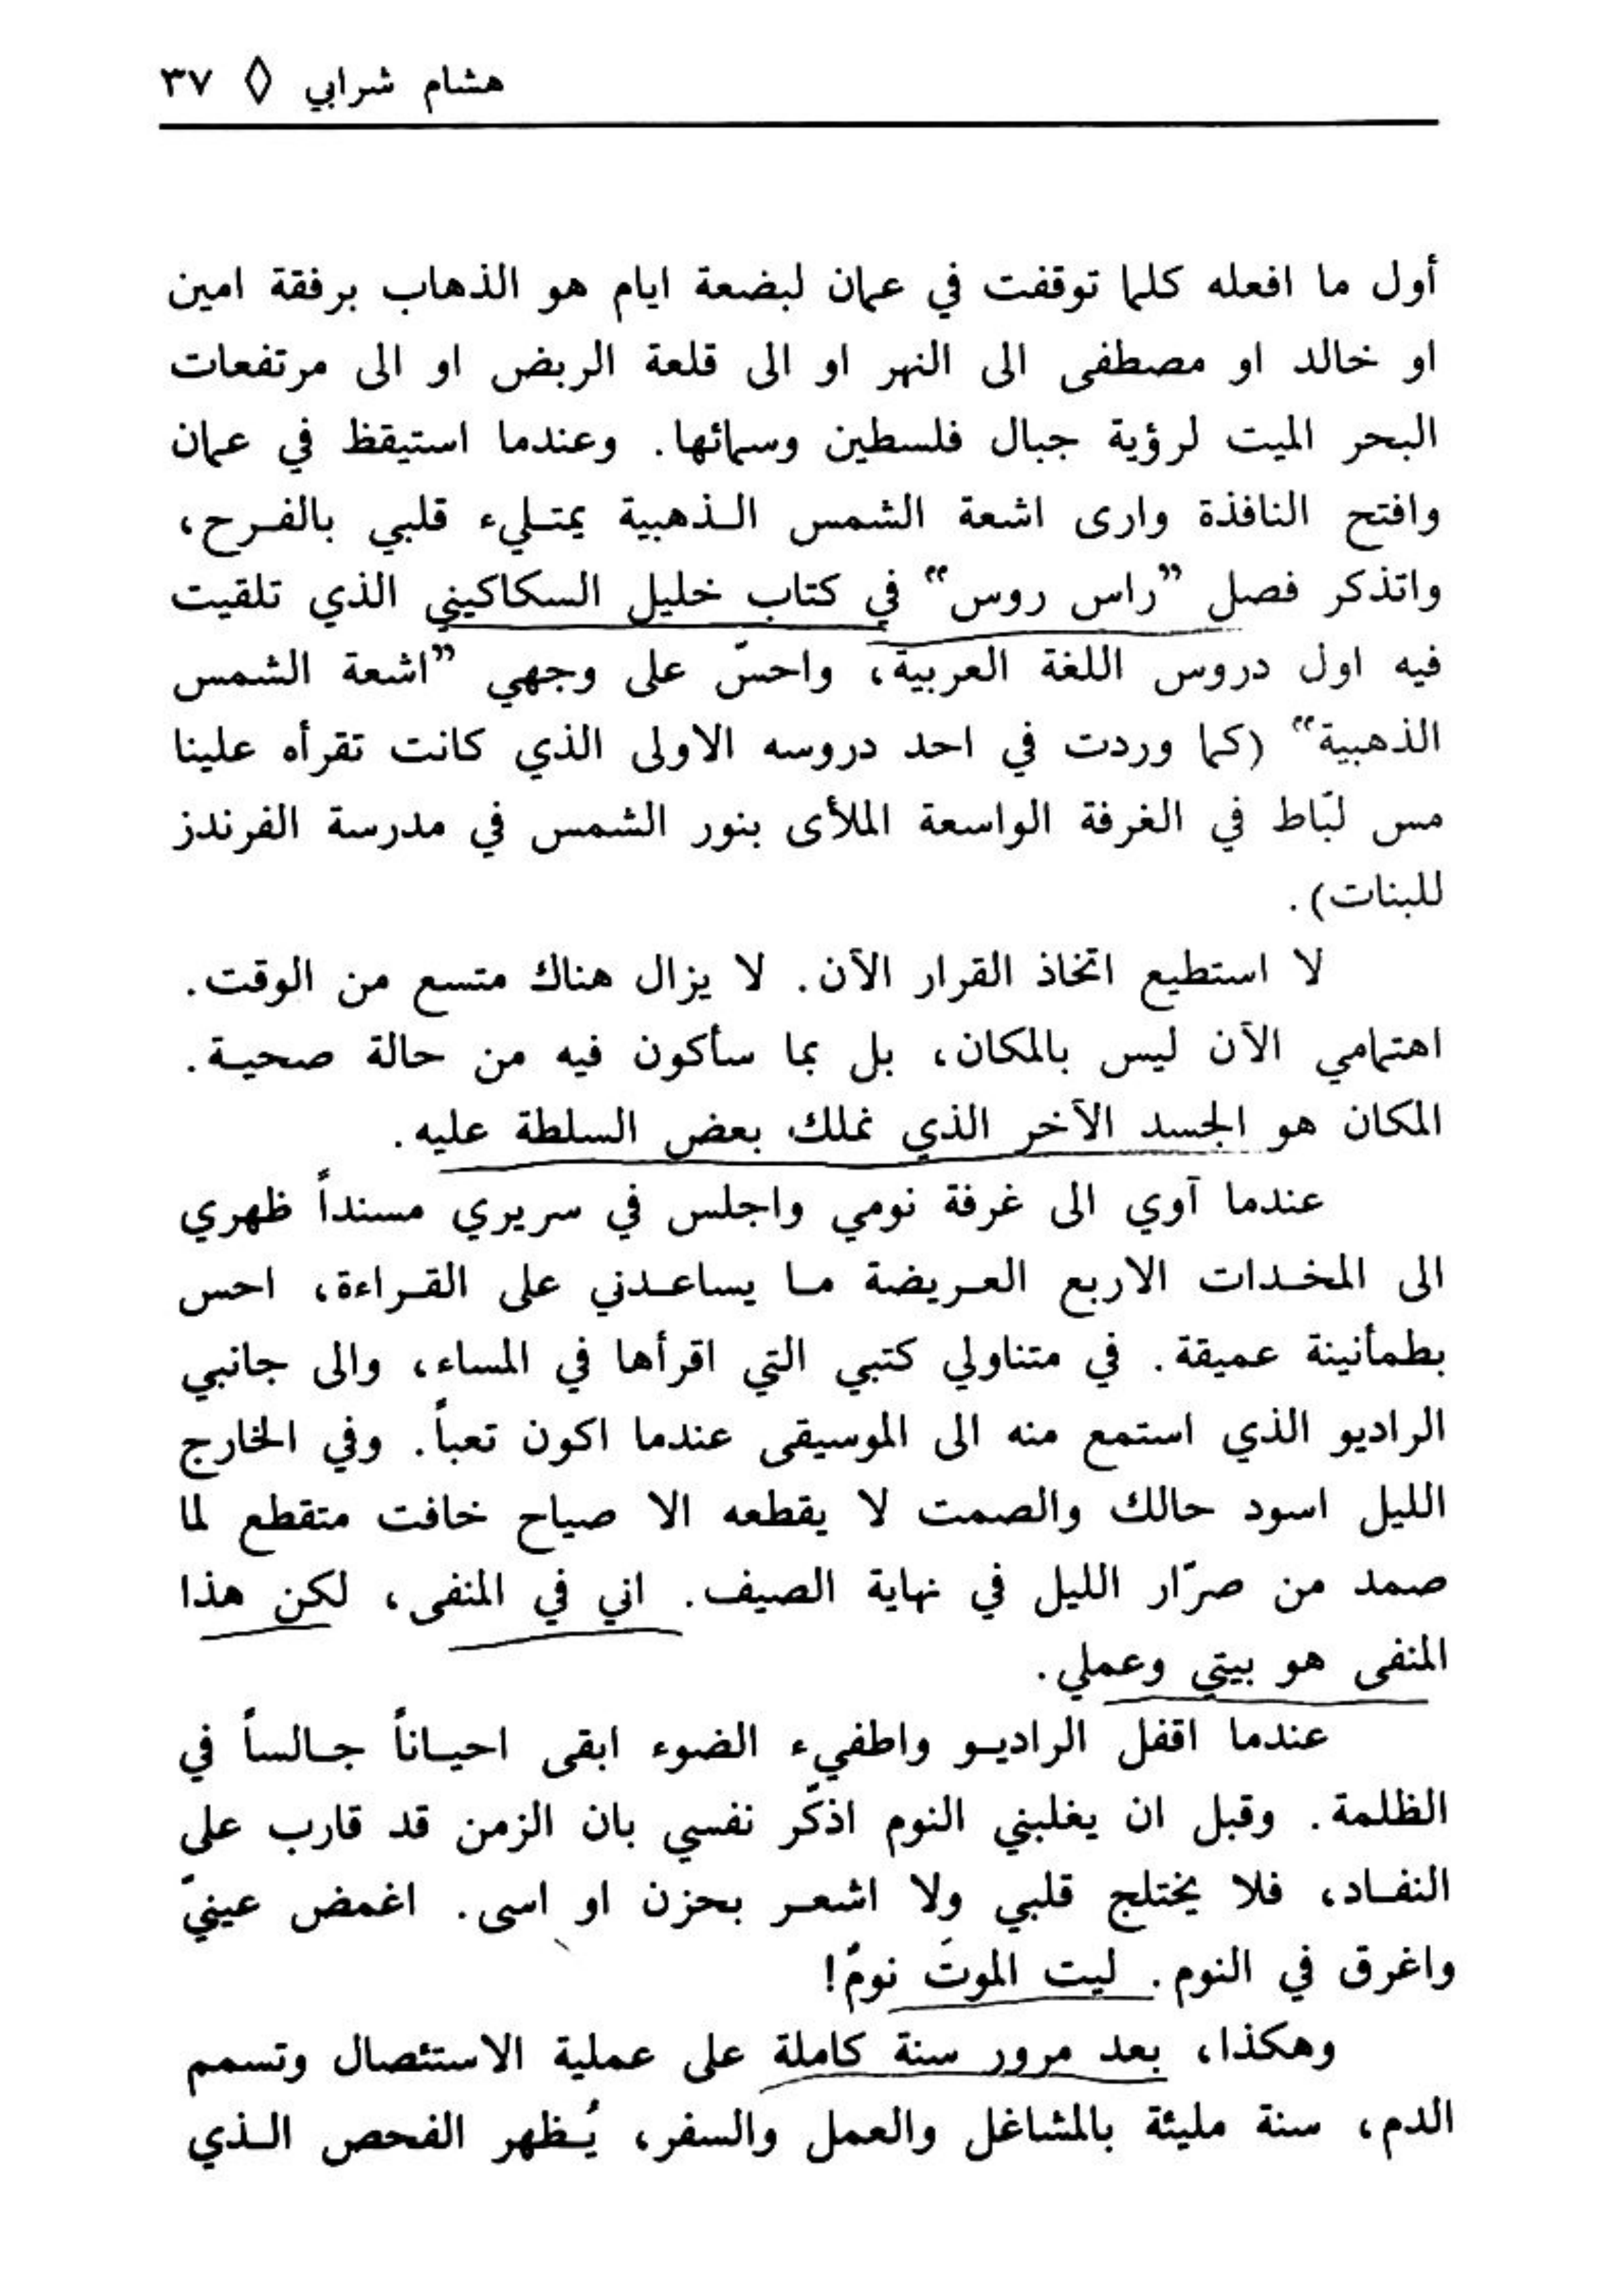 هشام شرابي ◊ ٣٧
أول ما افعله كلما توقفت في عمان لبضعة ايام هو الذهاب برفقة امين
او خالد او مصطفى الى النهر او الى قلعة الربض او الى مرتفعات
البحر الميت لرؤية جبال فلسطين وسمائها. وعندما استيقظ في عمان
وافتح النافذة وارى اشعة الشمس الـذهبية يمتـليء قلبي بالفـرح،
واتذكر فصل ”راس روس“ في كتاب خليل السكاكيني الذي تلقيت
فيه اول دروس اللغة العربية، واحسّ على وجهي ”اشعة الشمس
الذهبية“ (كما وردت في احد دروسه الاولى الذي كانت تقرأه علينا
مس لبّاط في الغرفة الواسعة الملأى بنور الشمس في مدرسة الفرندز
للبنات).
لا استطيع اتخاذ القرار الآن. لا يزال هناك متسع من الوقت.
اهتمامي الآن ليس بالمكان، بل بما سأكون فيه من حالة صحيـة.
المكان هو الجسد الآخر الذي نملك بعض السلطة عليه.
عندما آوي الى غرفة نومي واجلس في سريري مسنداً ظهري
الى المخـدات الاربع العـريضة مـا يساعـدني على القـراءة، احس
بطمأنينة عميقة. في متناولي كتبي التي اقرأها في المساء، والى جانبي
الراديو الذي استمع منه الى الموسيقى عندما اكون تعباً. وفي الخارج
الليل اسود حالك والصمت لا يقطعه الا صياح خافت متقطع لما
صمد من صرّار الليل في نهاية الصيف. اني في المنفى، لكن هذا
المنفى هو بيتي وعملي.
عندما اقفل الراديـو واطفيء الضوء ابقى احيـاناً جـالساً في
الظلمة. وقبل ان يغلبني النوم اذكّر نفسي بان الزمن قد قارب على
النفـاد، فلا يختلج قلبي ولا اشعـر بحزن او اسى. اغمض عينيّ
واغرق في النوم. ليت الموتَ نومٌ!
وهكذا، بعد مرور سنة كاملة على عملية الاستئصال وتسمم
الدم، سنة مليئة بالمشاغل والعمل والسفر، يُـظهر الفحص الـذي